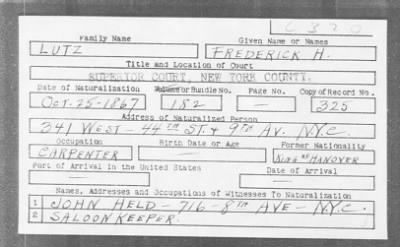 L 320
Family Name Given Name or Names
LUTZ FREDERICK H.
Title and Location of Court
SUPERIOR COURT, NEW YORK COUNTY.
Date of Naturalization Volume or Bundle No. Page No. Copy of Record No.
OCT-25-1867 182 — 325
Address of Naturalized Person
341 WEST - 44TH ST. & 9TH AV. N.Y.C.
Occupation Birth Date or Age Former Nationality
CARPENTER — KING OF HANOVER
Port of Arrival in the United States Date of Arrival
— —
Names, Addresses and Occupations of Witnesses To Naturalization
1 JOHN HELD - 716 - 8TH AVE - N.Y.C.
2 SALOON KEEPER.